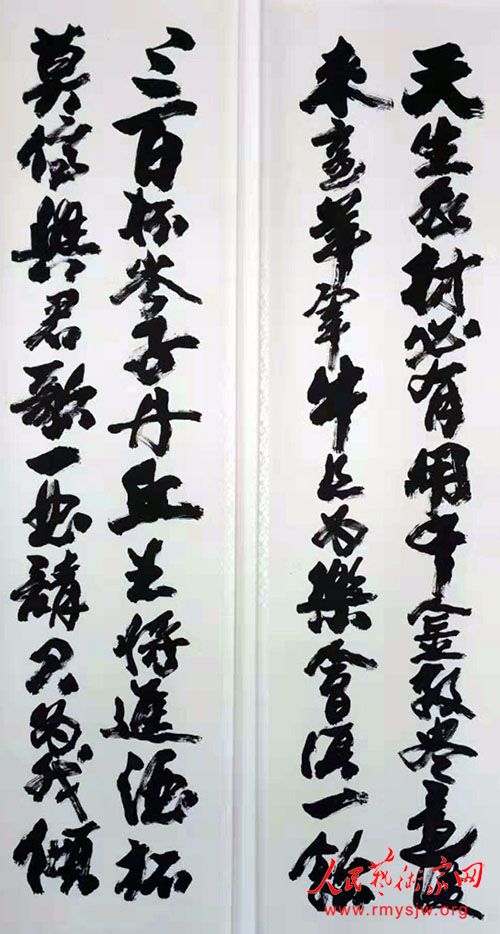 天生我材必有用千金散尽還復
来烹羊宰牛且为樂會須一飲
三百杯岑子丹丘生将進酒杯
莫停與君歌一曲請君为我傾
人民藝術家网
www.rmysjw.org